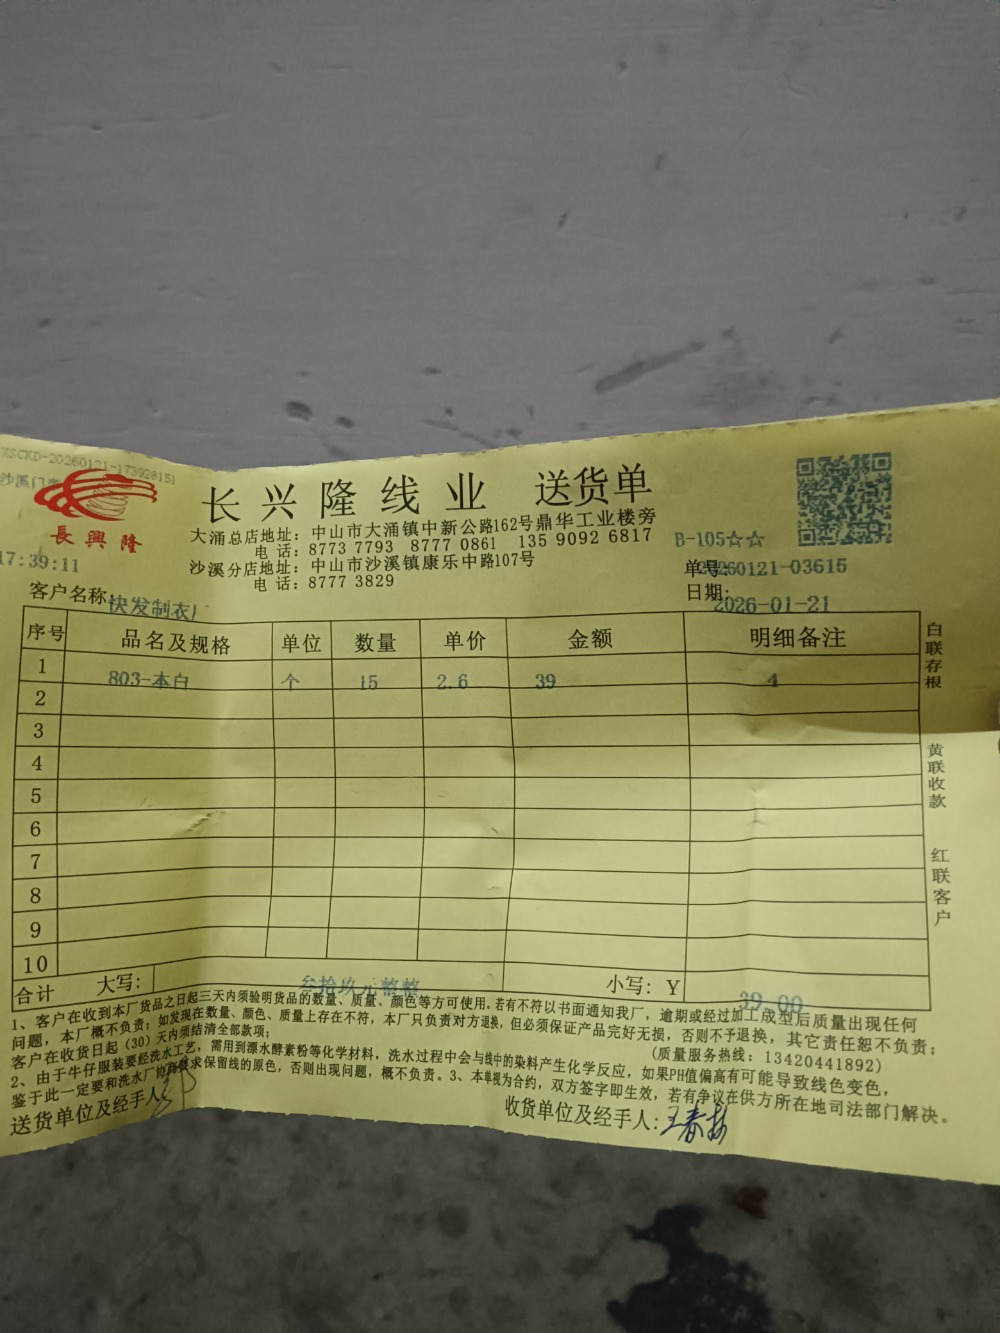 XSCKD-20260121-173928151
沙溪门
長興隆
长兴隆线业 送货单
大涌总店地址：中山市大涌镇中新公路162号鼎华工业楼旁
电话：8773 7793 8777 0861 135 9092 6817
沙溪分店地址：中山市沙溪镇康乐中路107号
电话：8777 3829
B-105☆☆
17:39:11
单号:20260121-03615
日期:2026-01-21
客户名称:快发制衣厂
序号 品名及规格 单位 数量 单价 金额 明细备注
1 803-本白 个 15 2.6 39 4
2
3
4
5
6
7
8
9
10
合计 大写: 叁拾玖元整整 小写: Y 39.00
白联存根
黄联收款
红联客户
1、客户在收到本厂货品之日起三天内须验明货品的数量、质量、颜色等方可使用。若有不符以书面通知我厂，逾期或经过加工成型后质量出现任何
问题，本厂概不负责；如发现在数量、颜色、质量上存在不符，本厂只负责对方退换，但必须保证产品完好无损，否则不予退换，其它责任恕不负责；
客户在收货日起（30）天内须结清全部款项；
(质量服务热线：13420441892)
2、由于牛仔服装要经洗水工艺，需用到漂水酵素粉等化学材料，洗水过程中会与线中的染料产生化学反应，如果PH值偏高有可能导致线色变色，
鉴于此一定要和洗水厂协商要求保留线的原色，否则出现问题，概不负责。3、本单视为合约，双方签字即生效，若有争议在供方所在地司法部门解决。
送货单位及经手人:
收货单位及经手人:王春梅